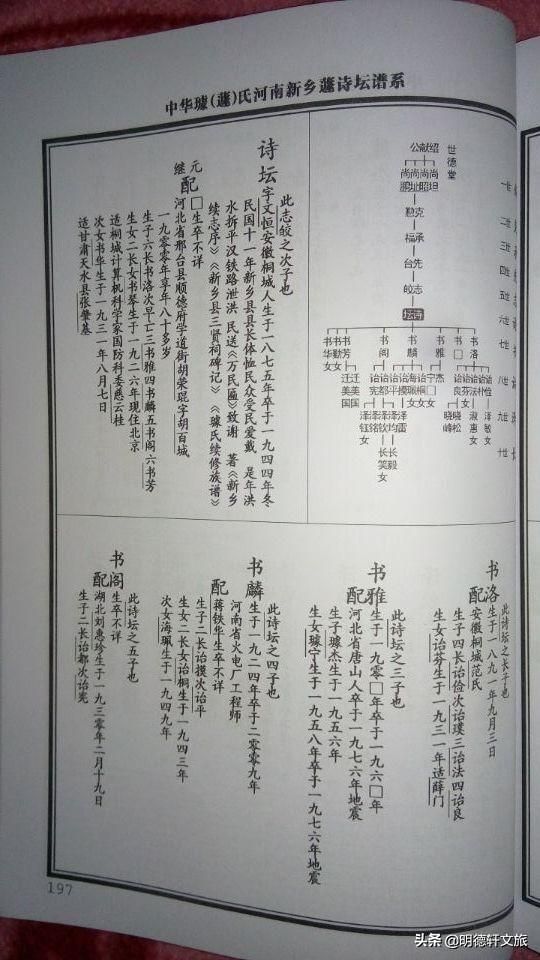 中华璩(蘧)氏河南新乡蘧诗坛谱系
世德堂
一世
二世
三世
四世
五世
六世
七世
八世
九世
十世
绍献公
尚坦
尚昭
尚址
尚鹏
克勋
承福
先台
志皎
诗坛
书洛
书□
书雅
书麟
书阁
书芳女
书勤女
书华
诗坛
此志皎之次子也
字文恒安徽桐城人生于一八七五年卒于一九四四年冬
民国十一年新乡县县长体恤民众受民爱戴 是年洪
水拆平汉铁路泄洪 民送《万民匾》致谢 著《新乡
续志序》《新乡县三贤祠碑记》《璩氏续修族谱》
元配□生卒不详
继配河北省邢台县顺德府学道街胡荣琨字胡百城
一九〇〇年享年八十多岁
生子六长书洛次早亡三书雅四书麟五书阁六书芳
生女二长女书琴生于一九二六年现住北京
适桐城计算机科学家国防科委慈云桂
次女书华生于一九三一年八月七日
适甘肃天水县张肇基
书洛
此诗坛之长子也
生于一八九一年九月三日
配安徽桐城范氏
生子四长诒俭次诒璞三诒法四诒良
生女诒芬生于一九三一年适薛门
书雅
此诗坛之三子也
生于一九〇□年卒于一九六□年
配河北省唐山人卒于一九七六年地震
生子璩杰生于一九五六年
生女璩宁生于一九五八年卒于一九七六年地震
书麟
此诗坛之四子也
生于一九二四年卒于二零零九年
河南省火电厂工程师
配蒋铁华生卒不详
生子二长诒摸次诒平
生女二长女诒桐生于一九四三年
次女海珮生于一九四九年
书阁
此诗坛之五子也
生卒不详
配湖北刘惠珍生于一九三〇年二月十九日
生子二长诒都次诒宪
197
头条 @明德轩文旅